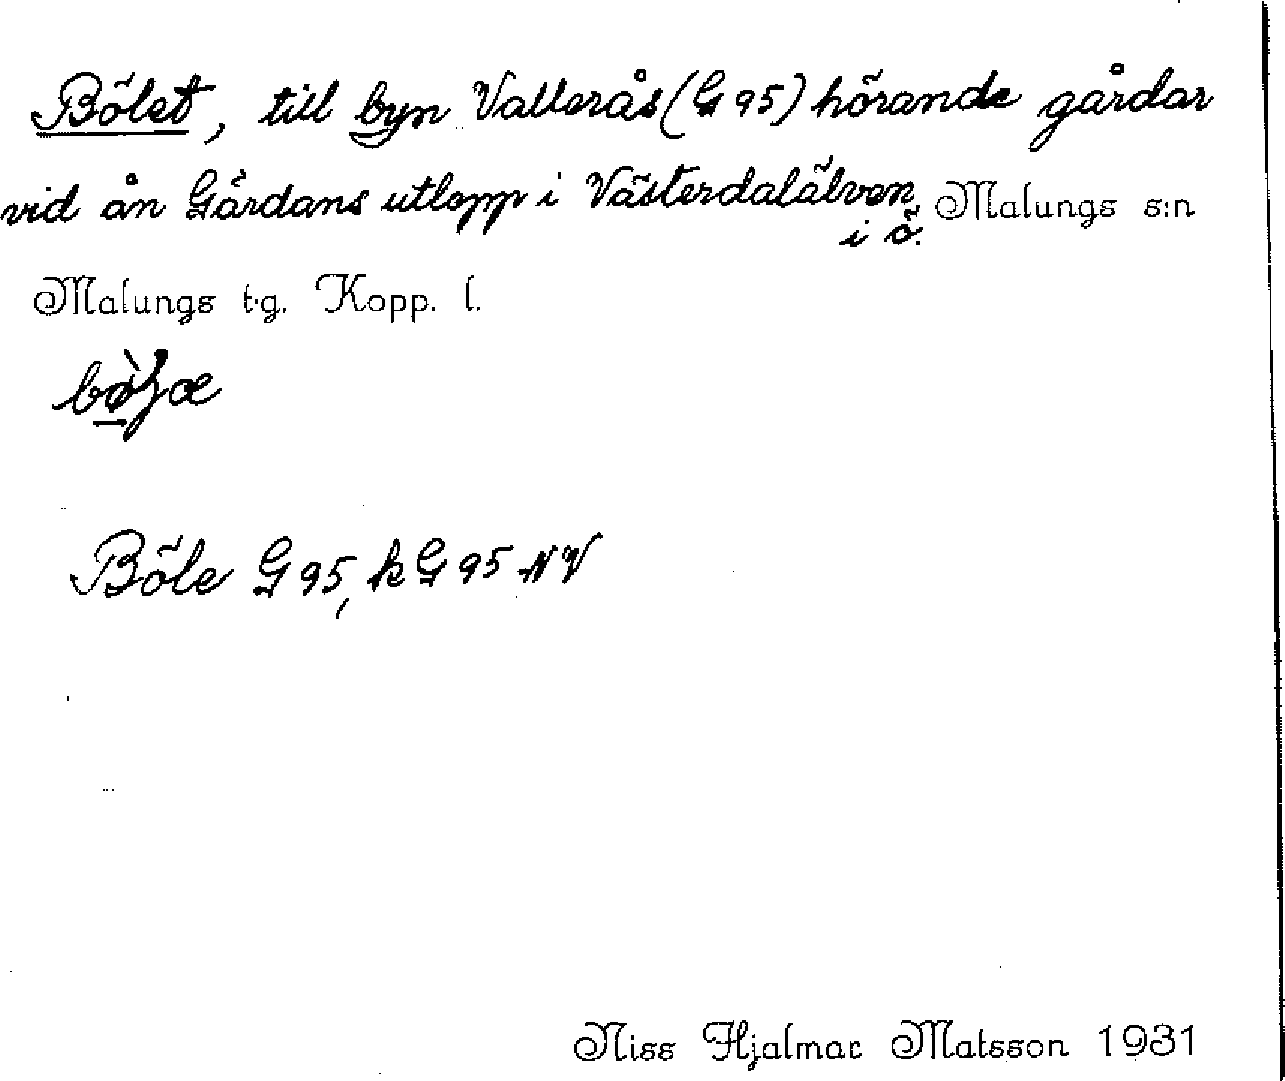 Bölet, till byn Vallerås (G 95) hörande gårdar
vid ån Gårdans utlopp i Västerdalälven Malungs s:n
i ö.
Malungs t.g. Kopp. l.
Böle G 95, k G 95 NV
Niss Hjalmar Matsson 1931